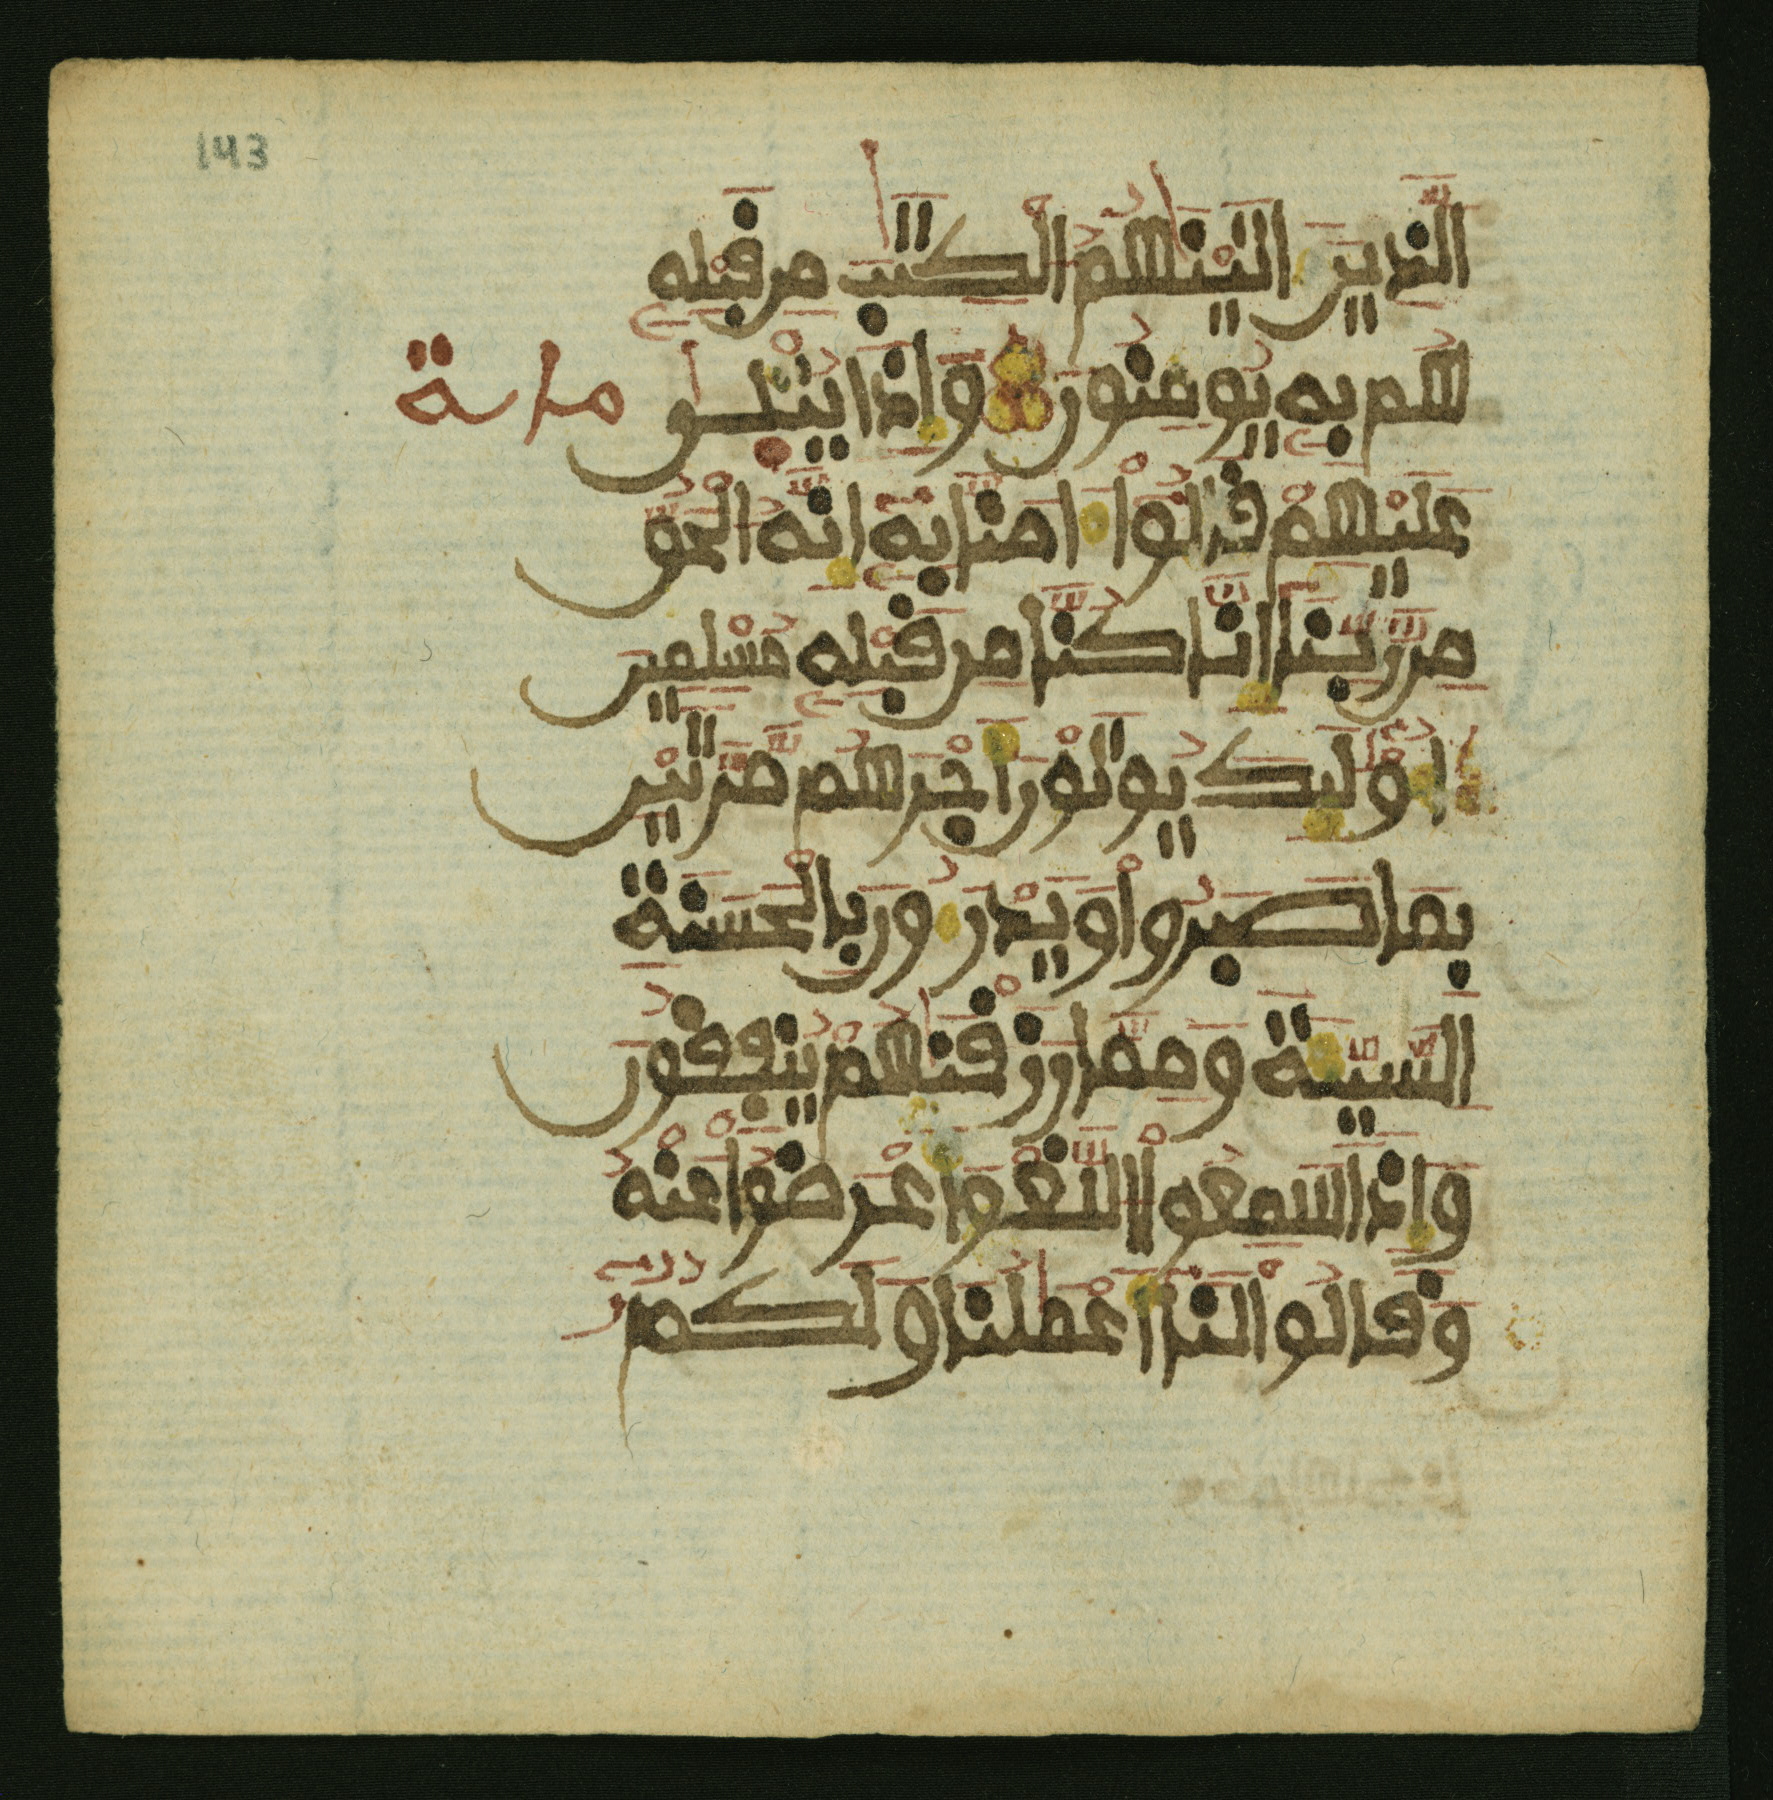 143
الذين اتينهم الكتب من قبله
هم به يومنون واذا يتلى
مالة
عليهم قالوا امنا به انه الحق
من ربنا انا كنا من قبله مسلمين
اوليك يوتون اجرهم مرتين
بما صبروا ويدرون بالحسنة
السيية ومما رزقنهم ينفقون
واذا سمعوا اللغو اعرضوا عنه
وقالوا لنا اعملنا ولكم